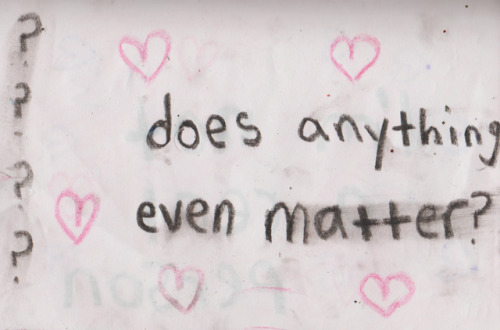 ?
?
?
?
does anything
even matter?
person